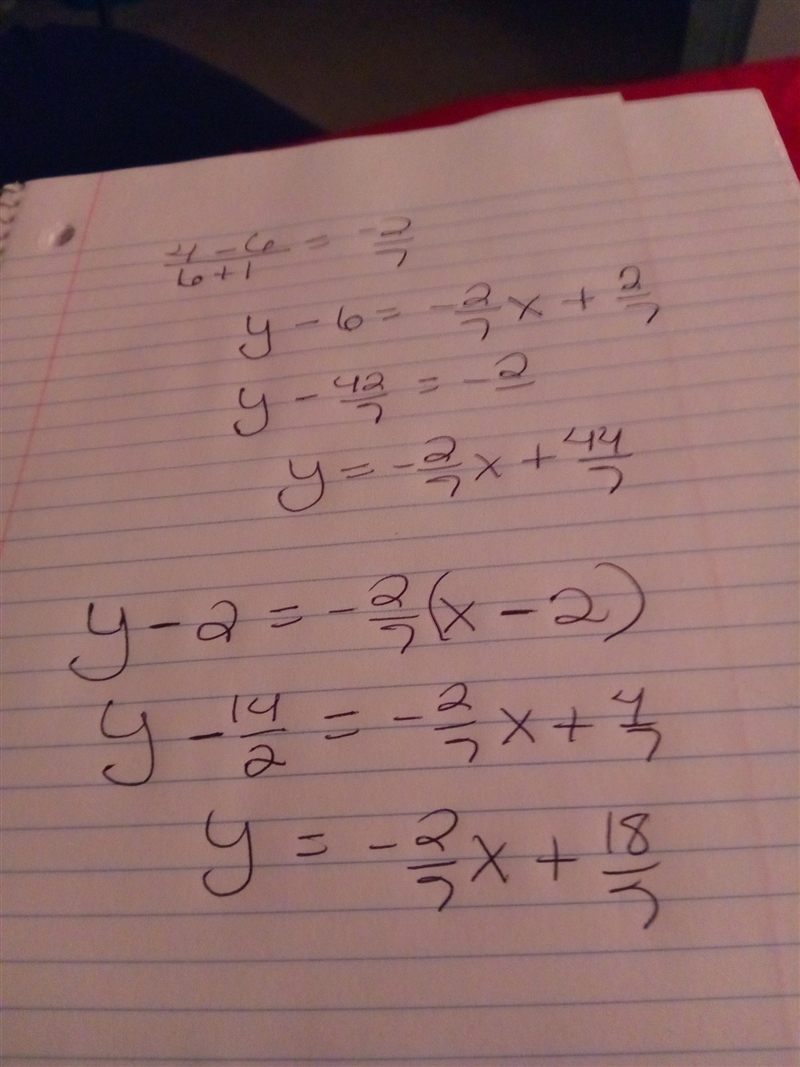 4 - 6 / 6 + 1 = -2/7
y - 6 = -2/7 x + 2/7
y - 42/7 = -2
y = -2/7 x + 44/7
y - 2 = -2/7 (x - 2)
y - 14/2 = -2/7 x + 4/7
y = -2/7 x + 18/7